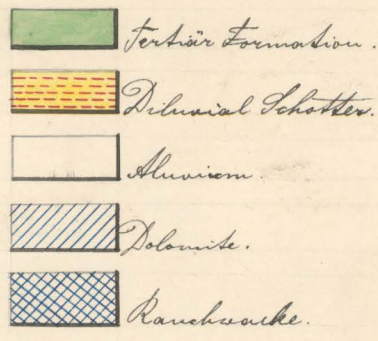 Tertiär Formation.
Diluvial Schotter.
Aluvium.
Dolomite.
Rauchwacke.